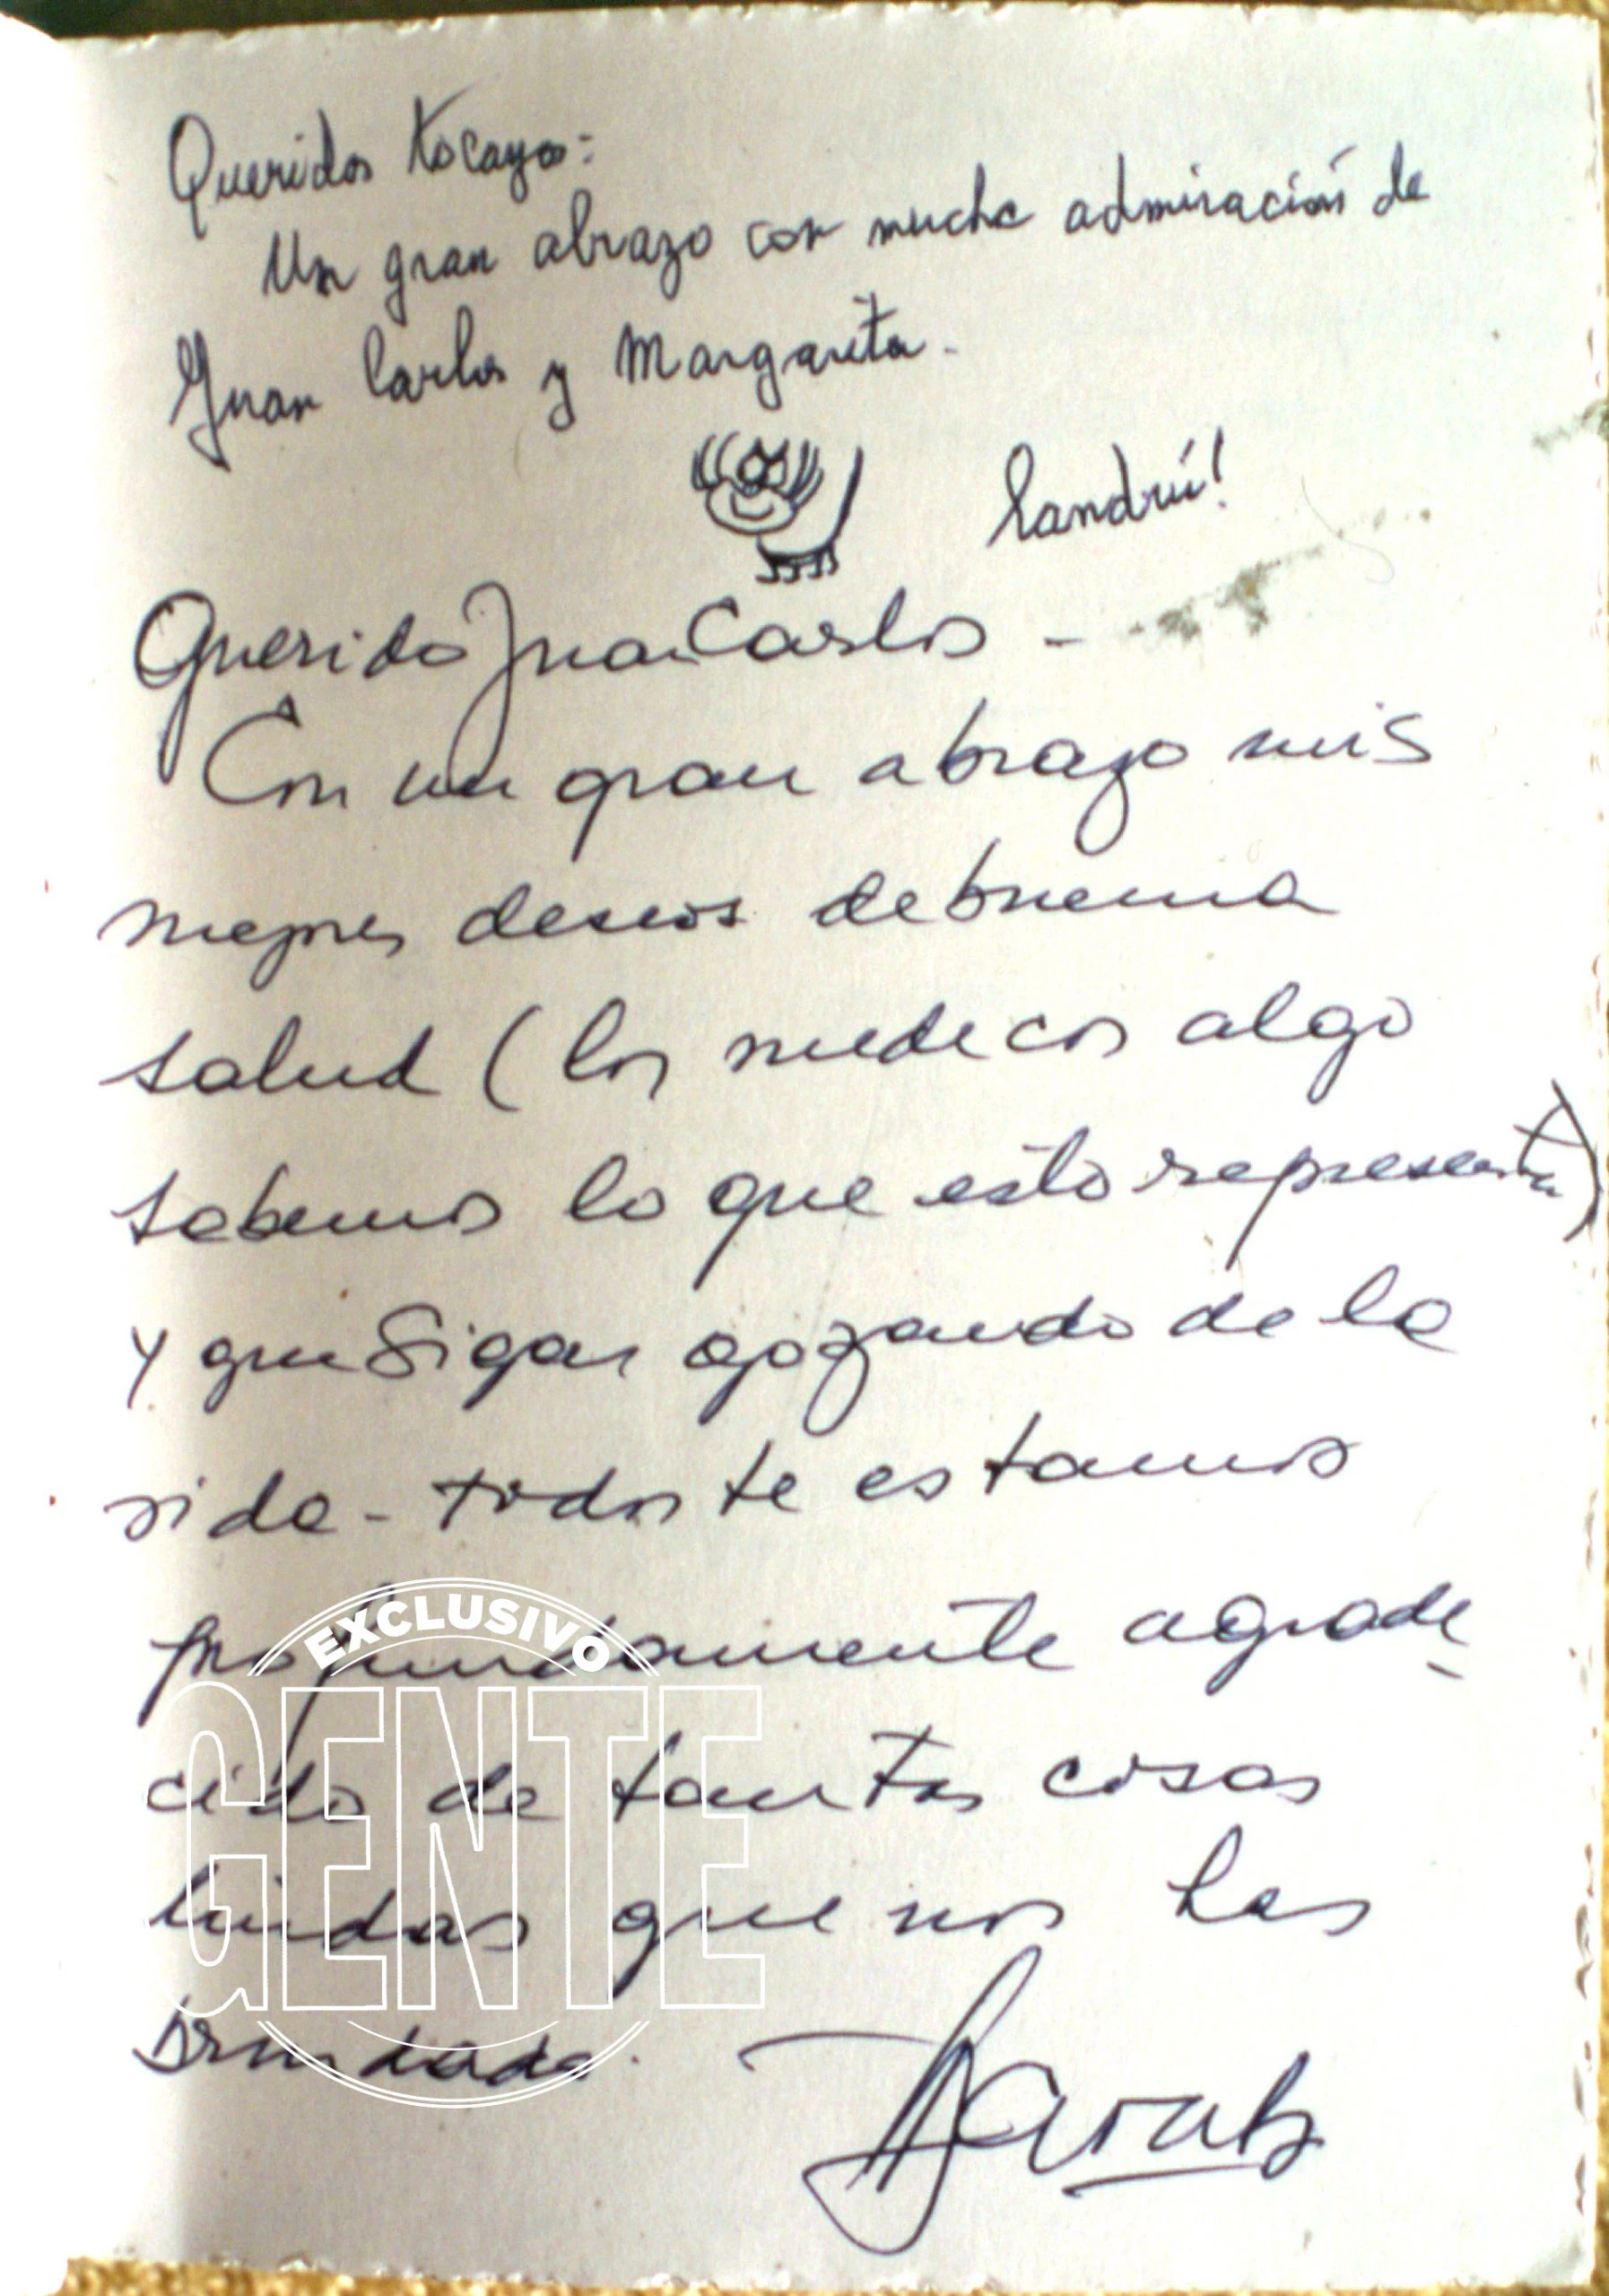 Queridos tocayos:
Un gran abrazo con mucha admiración de
Juan Carlos y Margarita.
Landrú!
Querido Juan Carlos -
Con un gran abrazo mis
mejores deseos de buena
salud (los medicos algo
sabemos lo que esto representa)
y que sigas gozando de la
vida - todos te estamos
profundamente agrade
cido de tantas cosas
lindas que nos has
brindado.
EXCLUSIVO
GENTE